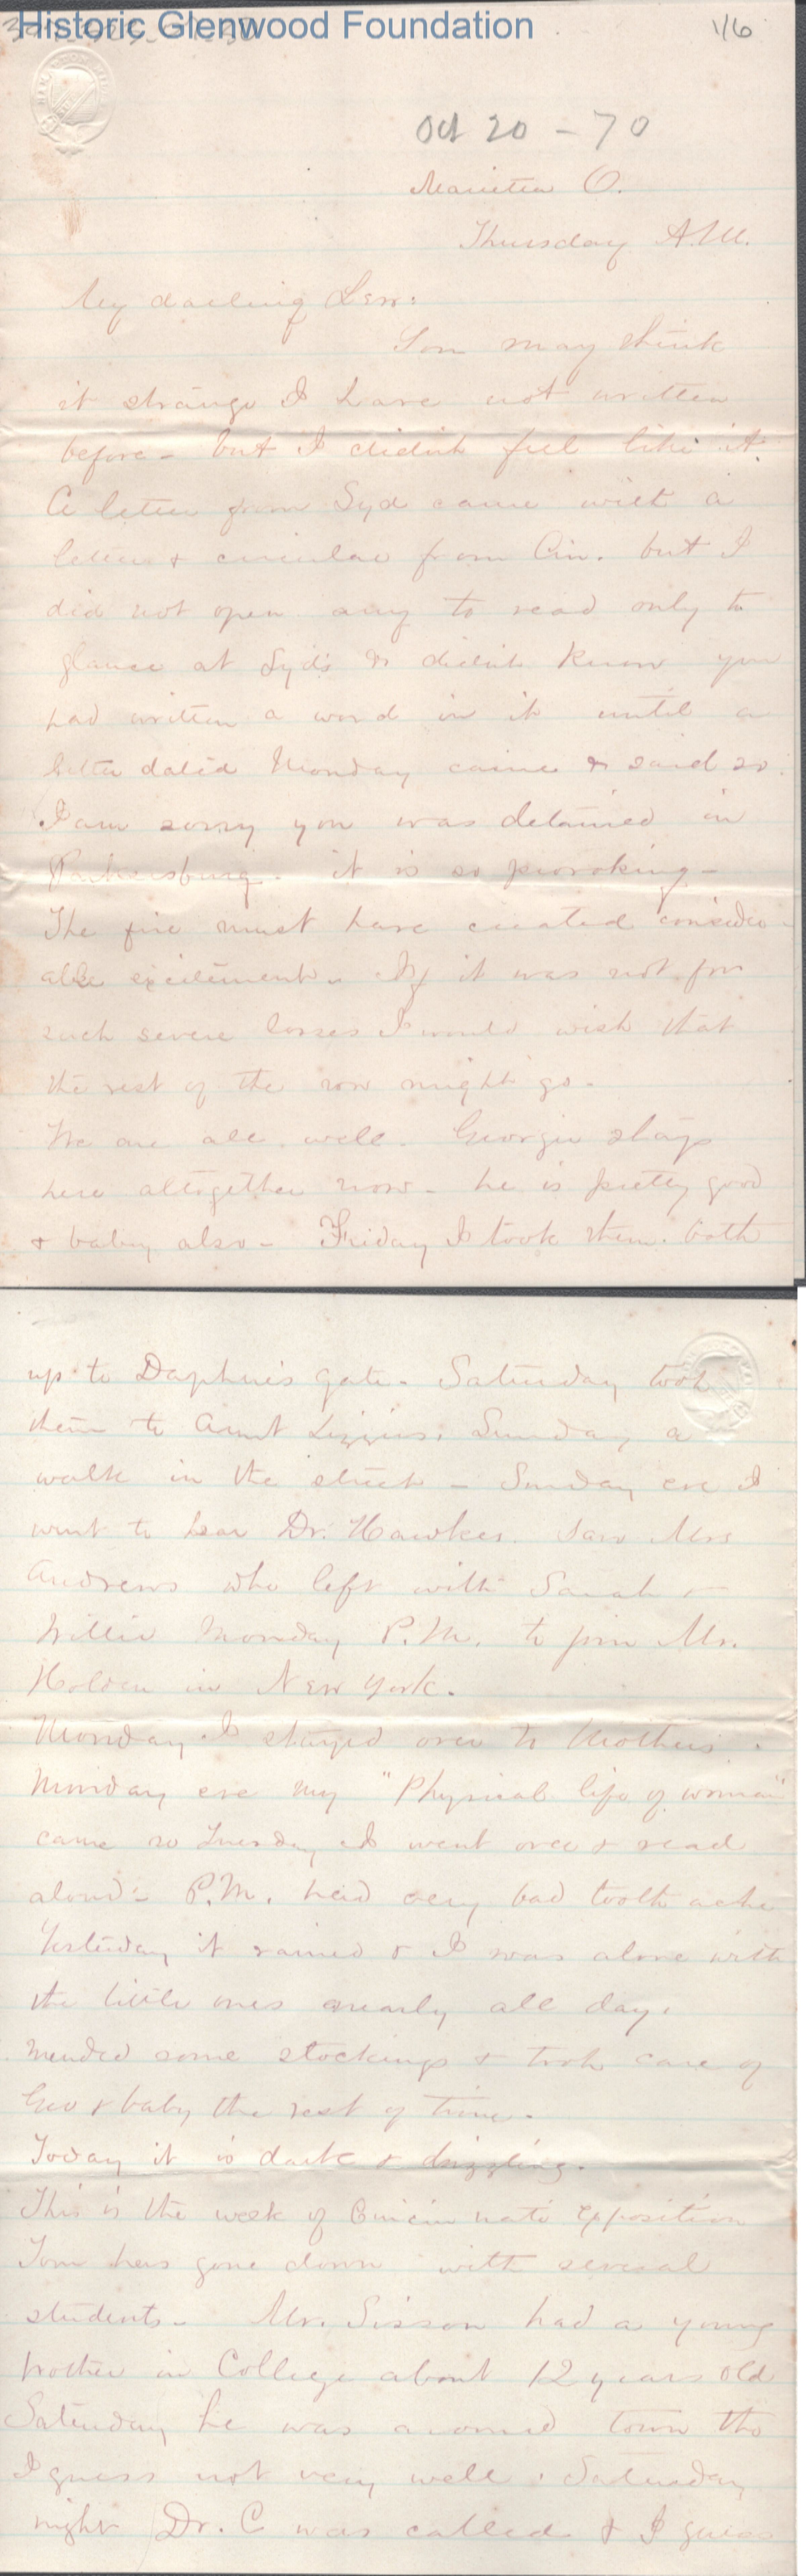 Historic Glenwood Foundation
1/6
Oct 20 - 70
Marietta O.
Thursday A.M.
My darling Lew:
You may think
it strange I have not written
before - but I didnt feel like it.
A letter from Syd came with a
letter & circular from Cin. but I
did not open any to read only to
glance at Syd's & didnt know you
had written a word in it until a
letter dated Monday came & said so.
I am sorry you was detained in
Parkersburg. it is so provoking -
The fire must have created consider-
able excitement. If it was not for
such severe losses I would wish that
the rest of the row might go.
We are all well. Georgie stays
here altogether now - he is pretty good
& baby also - Friday I took them both
up to Daphne's gate. Saturday took
them to Aunt Lizzies. Sunday a
walk in the street - Sunday eve I
went to hear Dr. Hawkes. Saw Mrs
Andrews who left with Sarah &
Willie Monday P.M. to join Mr.
Holden in New York.
Monday I stayed over to Mothers.
Monday eve my "Physical life of woman"
came so Tuesday I went over & read
aloud - P.M. had very bad tooth ache
Yesterday it rained & I was alone with
the little ones nearly all day.
Mended some stockings & took care of
Geo & baby the rest of time.
Today it is dark & drizzling.
This is the week of Cincinnati Exposition
Tom has gone down with several
students - Mr. Sisson had a young
brother in College about 12 years old
Saturday he was around town tho
I guess not very well. Saturday
night Dr. C was called & I guess